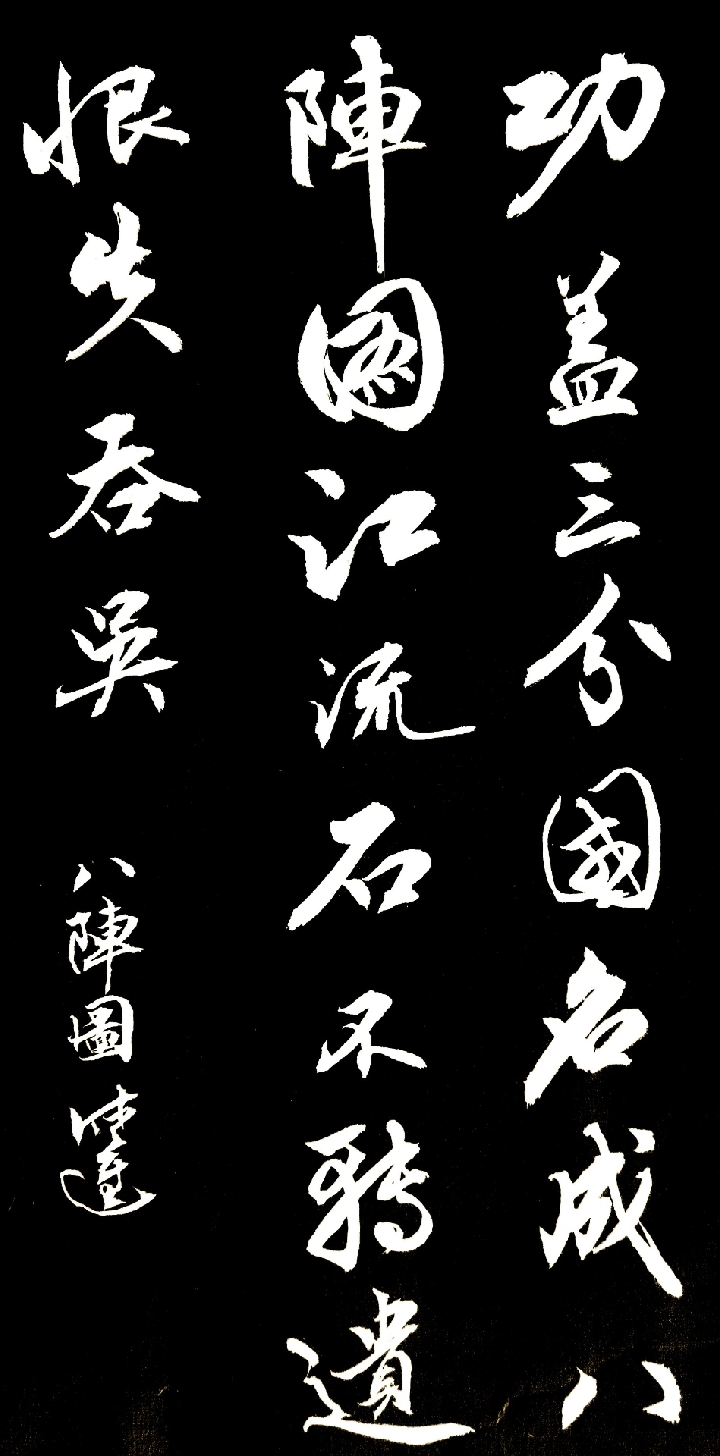 功盖三分國名成八
陣圖江流石不轉遺
恨失吞吳
八陣圖